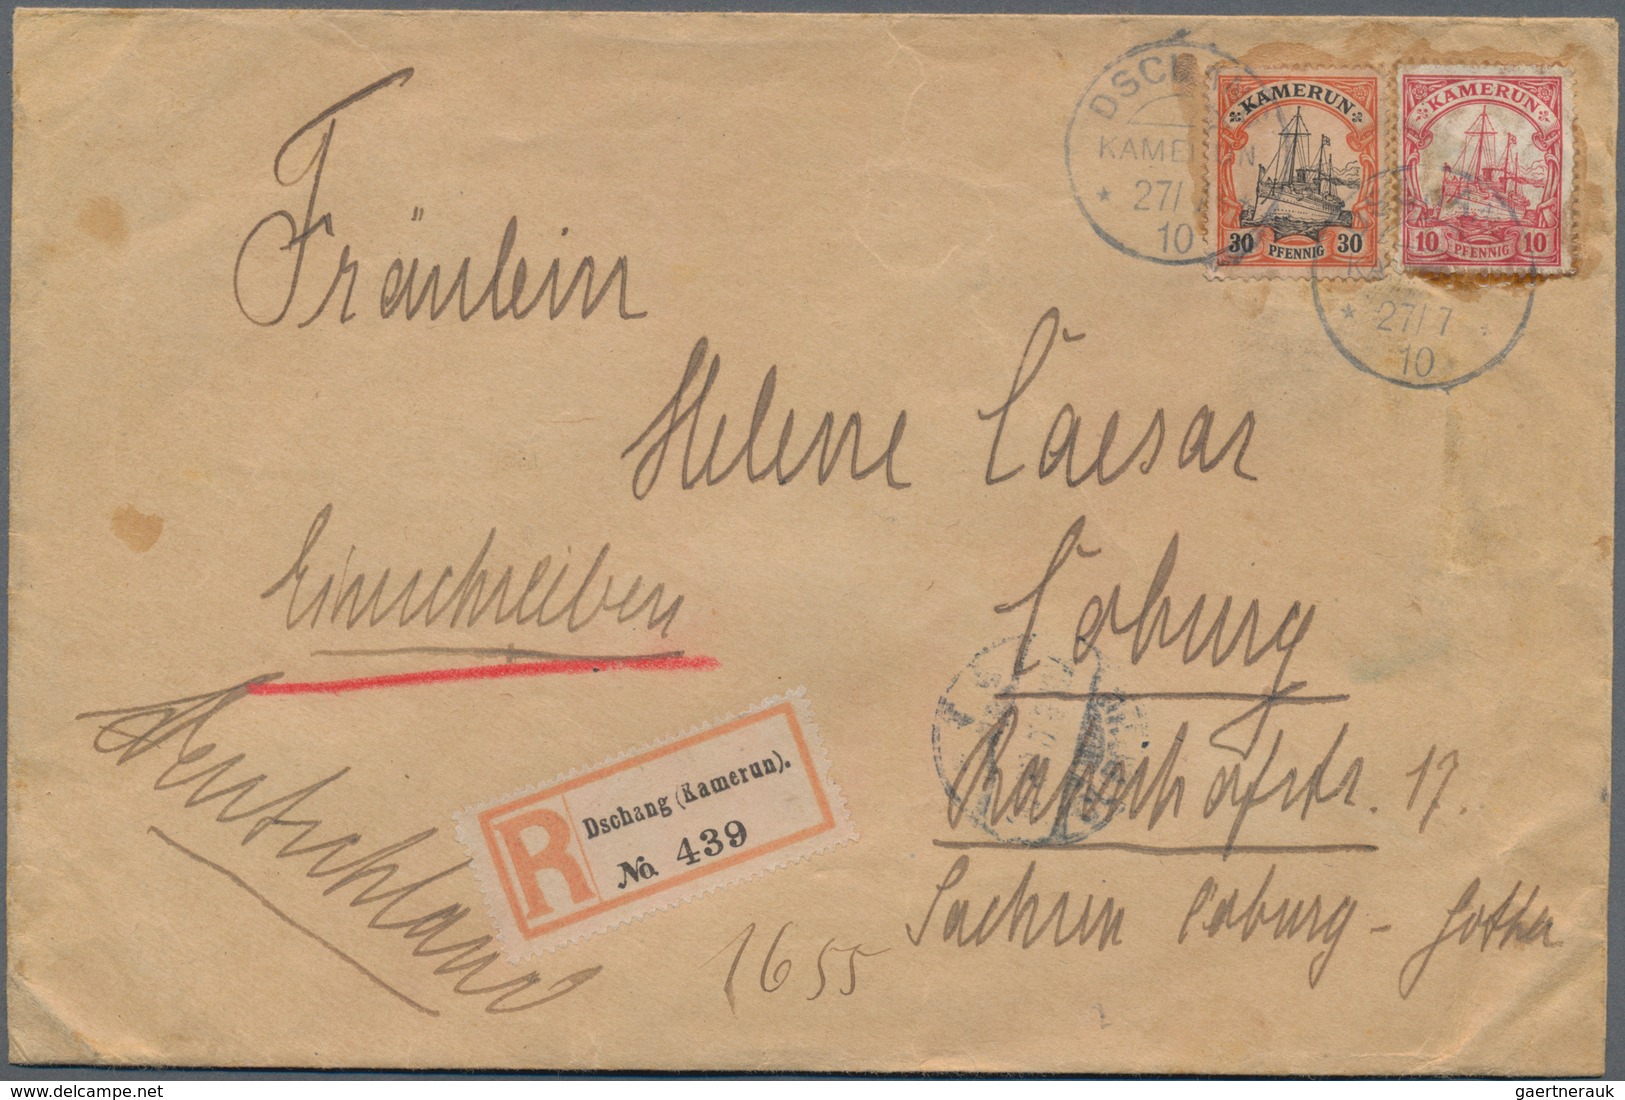 KAMERUN
30 PFENNIG 30
KAMERUN
10 PFENNIG 10
27/
10
27/7
10
Fräulein
Helene Caesar
Einschreiben
Coburg
Deutschland
Bahnhofstr. 17.
Sachsen Coburg - Gotha
R
Dschang (Kamerun).
No 439
1655
delcampe.net
gaertnerauk